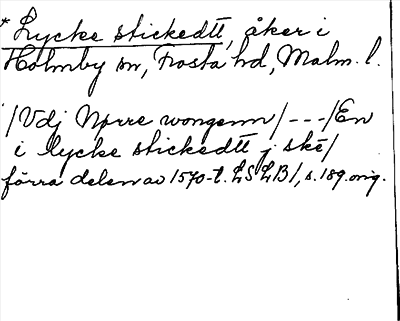 * Lycke stickedtt, åker i
Holmby sn, Frosta hd, Malm. l.
/Vdj Nørre wongenn/ - - - /En
i lycke stickedtt j skē/
förra delen av 1570-t. LSLB1, s. 189. orig.